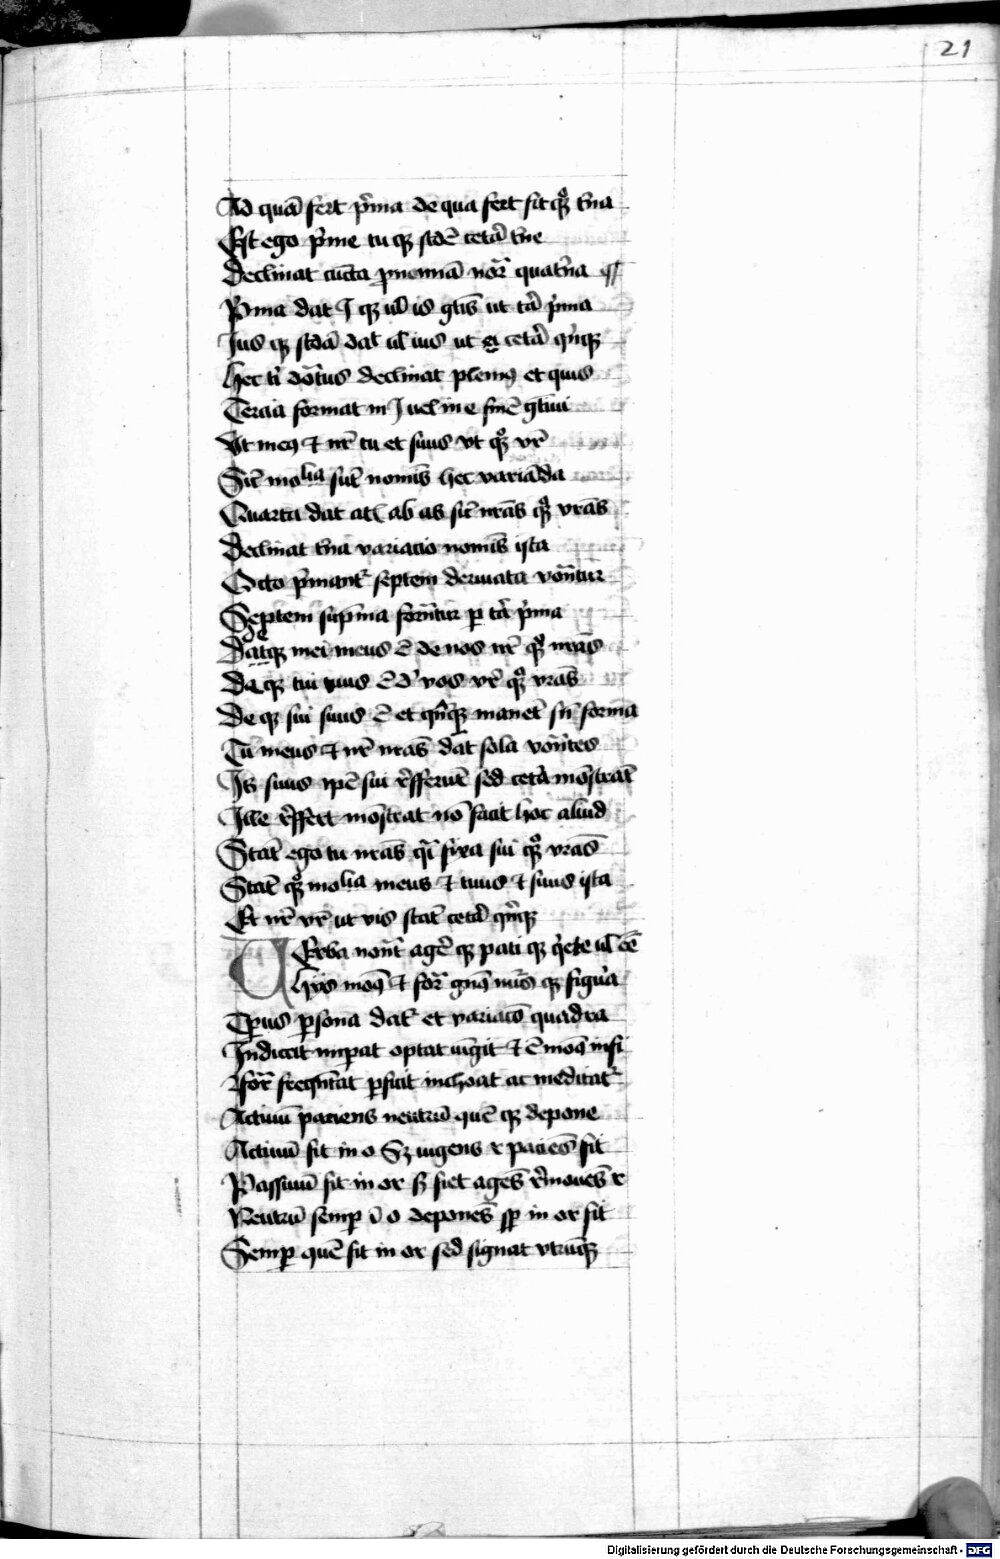 21
Ad quā fert p̄ma de qua fert sit qꝫ t̄na
Est ego p̄me tu qꝫ scdē cetā t̄ne
Declinat cūcta pnomīa nor̄ quat̄na
P̄ma dat I qꝫ ul̄ is gtīs ut tā p̄ma
Ius qꝫ scdā dat ul̄ ius ut cetā qͥnqꝫ
Hec ti declinat et quis
Tercia format in I uel in e finē gtīui
Vt meꝰ ⁊ nr̄ tu et suus vt qꝫ vr̄
Sic̄ moᵇⁱˡⁱᵃ sūt nomīs hec variāda
Quarta dat ati᷑ ab as sic̄ nr̄as qꝫ vr̄as
Declinat t̄na variatio nomīs ista
Octo p̄mant᷑ septem deriuata vocn̄tur
Septem sūpma form̄tur p tā p̄ma
De qꝫ mei meus ē de nos nr̄ qꝫ nr̄as
De qꝫ tui tuus ē d̄ vos vr̄ qꝫ vr̄as
De qꝫ sui suus ē et qͥnqꝫ manet sn̄ forma
Tu meus ⁊ nr̄ nr̄as dat sola vocn̄tes
Is suus ip̄e sui r̄fferūt sed cetā mōstrāt
Ille r̄ffert mōstrat nō facit hoc aliud
Stāt ego tu nr̄as qͥ fixa sui qꝫ vr̄as
Stāt qꝫ molia meus ⁊ tuus ⁊ suus ista
Et nr̄ vr̄ ut vis stāt cetā qͥnqꝫ
Verba non̄t agē qꝫ pati qꝫ ul̄ cē
Hijs moꝰ ⁊ for̄ gnꝰ nūs qꝫ figu̍a
Tp̄us p̄sona dat᷑ et variatō quadra
Indicat imp̄at optat iūgit ⁊ ē moꝰ infi
For̄ freqn̄tat p̄ficit inchoat ac meditat᷑
Actiuū patiens neutrū quē qꝫ depone
Actiuū fit in o sꝫ iugens r patiēs fit
Passiuū fit in or sꝫ fiet agēs r̄mouēs r
Neutrū semp ī o deponēs sp̄ in or fit
Semp quē fit in or sed signat vtrūqꝫ
Digitalisierung gefördert durch die Deutsche Forschungsgemeinschaft - DFG